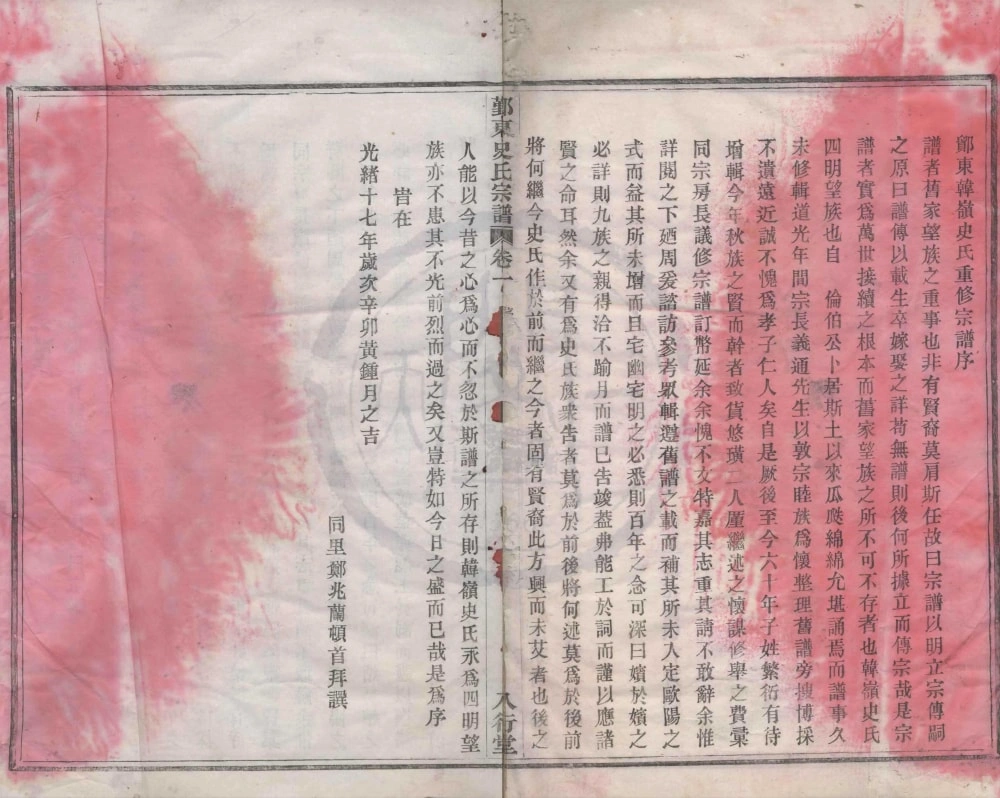 鄮東韓嶺史氏重修宗譜序
譜者舊家望族之重事也非有賢裔莫肩斯任故曰宗譜以明立宗傳嗣
之原曰譜傳以載生卒嫁娶之詳苟無譜則後何所據立而傳宗哉是宗
譜者實爲萬世接續之根本而舊家望族之所不可不存者也韓嶺史氏
四明望族也自　倫伯公卜居斯土以來瓜瓞綿綿允堪誦焉而譜事久
未修輯道光年間宗長義通先生以敦宗睦族爲懷整理舊譜旁搜博採
不遺遠近誠不愧爲孝子仁人矣自是厥後至今六十年子姓繁衍有待
增輯今年秋族之賢而幹者致貨悠璜二人厪繼述之懷謀修舉之費彚
同宗房長議修宗譜訂幣延余余愧不文特嘉其志重其請不敢辭余惟
詳閱之下廼周爰諮訪參考眾輯遵舊譜之載而補其所未入定歐陽之
式而益其所未增而且宅幽宅明之必悉則百年之念可深曰嬪於嬪之
必詳則九族之親得洽不踰月而譜已告竣葢弗能工於詞而謹以應諸
賢之命耳然余又有爲史氏族衆告者莫爲於前後將何述莫爲於後前
將何繼今史氏作於前而繼之今者固有賢裔此方興而未艾者也後之
鄮東史氏宗譜
卷一
八行堂
人能以今昔之心爲心而不忽於斯譜之所存則韓嶺史氏永爲四明望
族亦不患其不光前烈而過之矣又豈特如今日之盛而已哉是爲序
旹在
光緒十七年歲次辛卯黃鍾月之吉
同里鄭兆蘭頓首拜譔